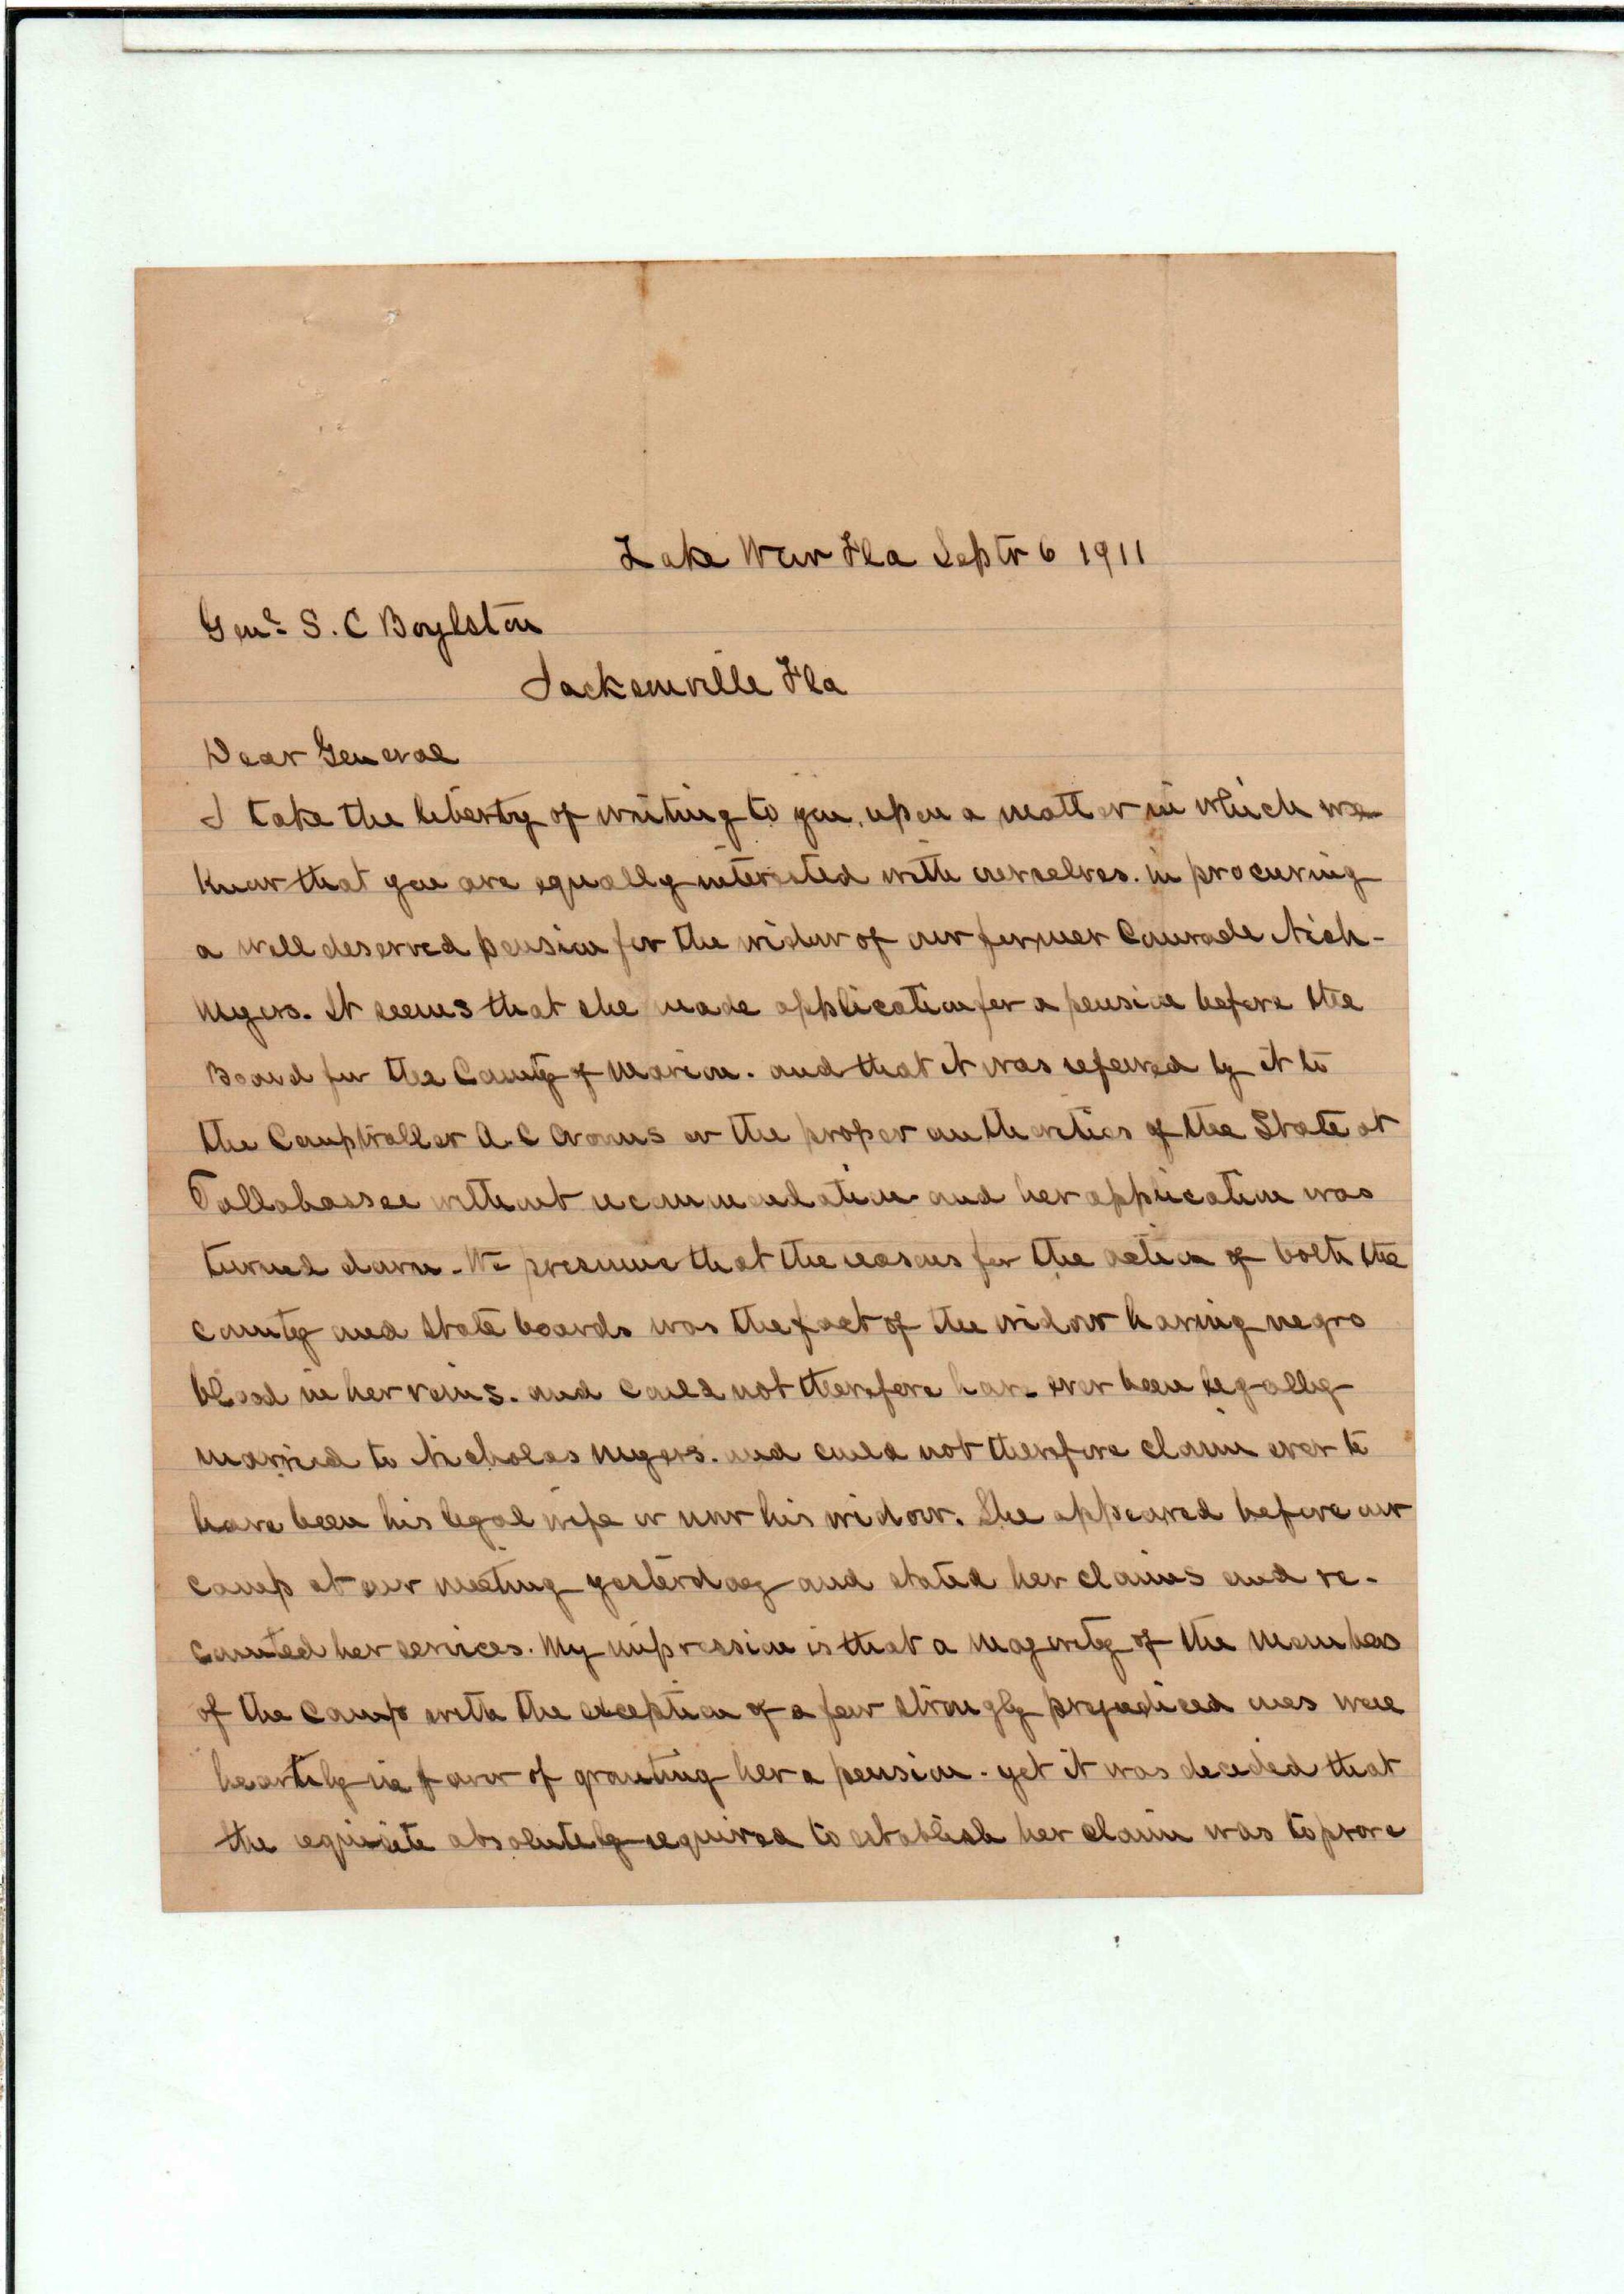 Lake Weir Fla Septr 6 1911
Genl. S. C Boylston
Jacksonville Fla
Dear General
I take the liberty of writing to you, upon a matter in which we
know that you are equally interested with ourselves. in procuring
a well deserved pension for the widow of our former Comrade Nich-
Myers. It seems that she made application for a pension before the
Board for the County of Marion. and that it was referred by it to
the Comptroller A. C Croom's or the proper authorities of the State at
Tallahassee without recommendation and her application was
turned down. We presume that the reasons for the action of both the
county and state boards was the fact of the widow having negro
blood in her veins. and could not therefore have ever been legally
married to Nicholas Myers. and could not therefore claim ever to
have been his legal wife or now his widow. She appeared before our
camp at our meeting yesterday and stated her claims and re-
counted her services. My impression is that a majority of the members
of the camp with the exception of a few strongly prejudiced ones were
heartily in favor of granting her a pension. yet it was decided that
the requisite absolutely required to establish her claim was to prove